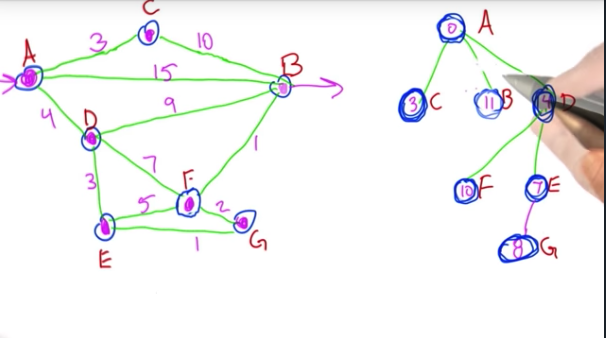 C
A
3
10
15
B
4
D
9
7
3
F
1
5
2
E
1
G
0 A
3 C
11 B
D
10 F
7 E
8 G